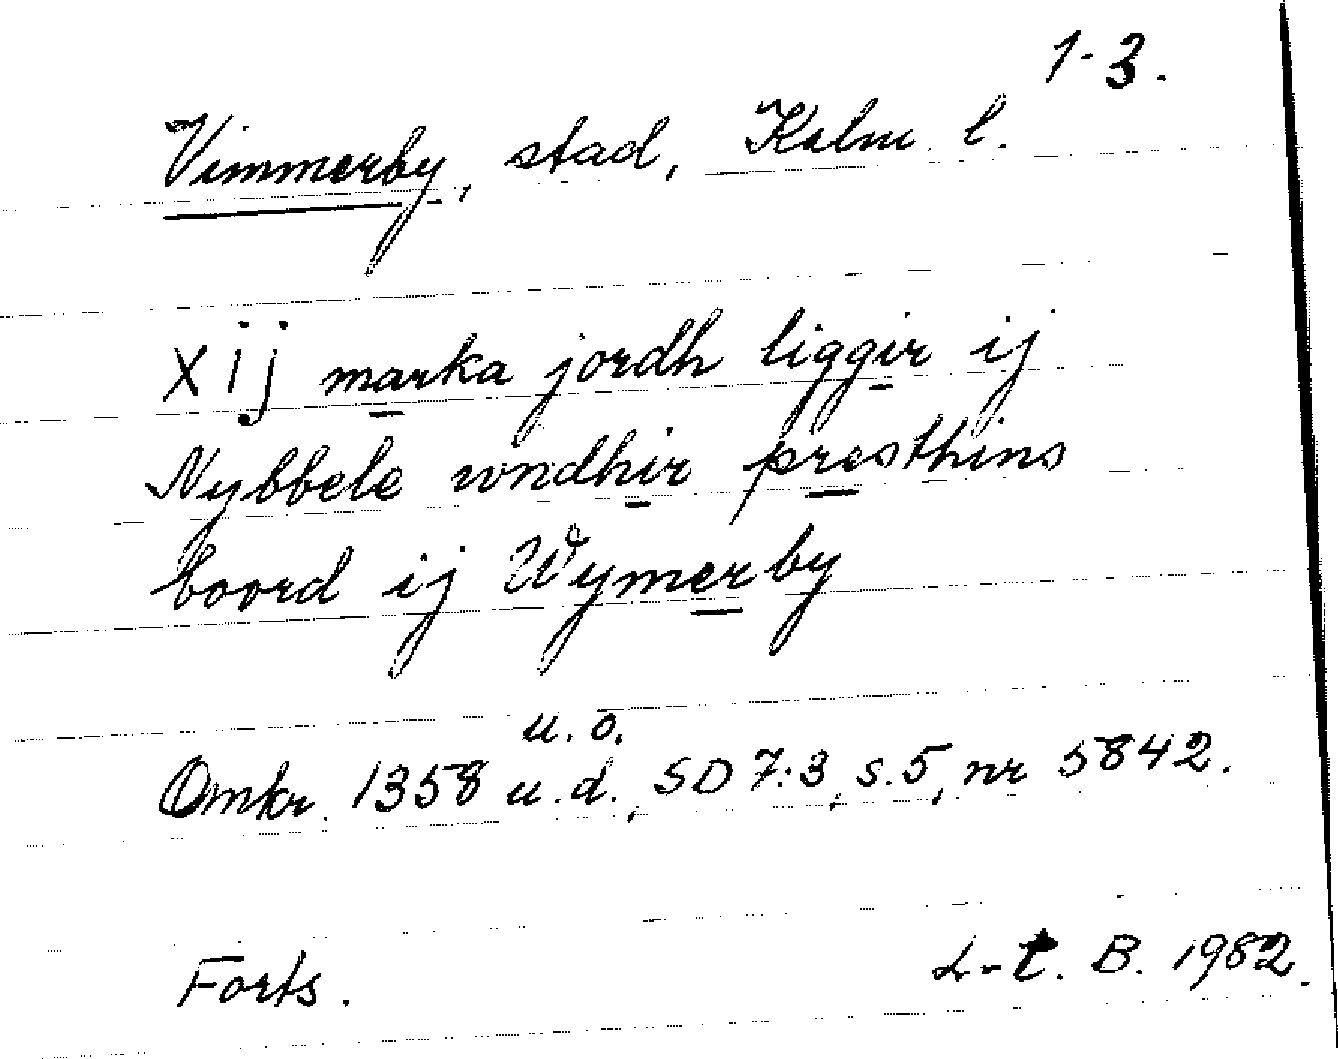 1-3.
Vimmerby, stad, Kalm l.
xij marka jordh liggir ij
Nybbele wndhir presthins
boord ij Wymerby
u. o.
Omkr. 1358 u.d., SD 7:3, s.5, nr 5842.
Forts. L-t. B. 1982.